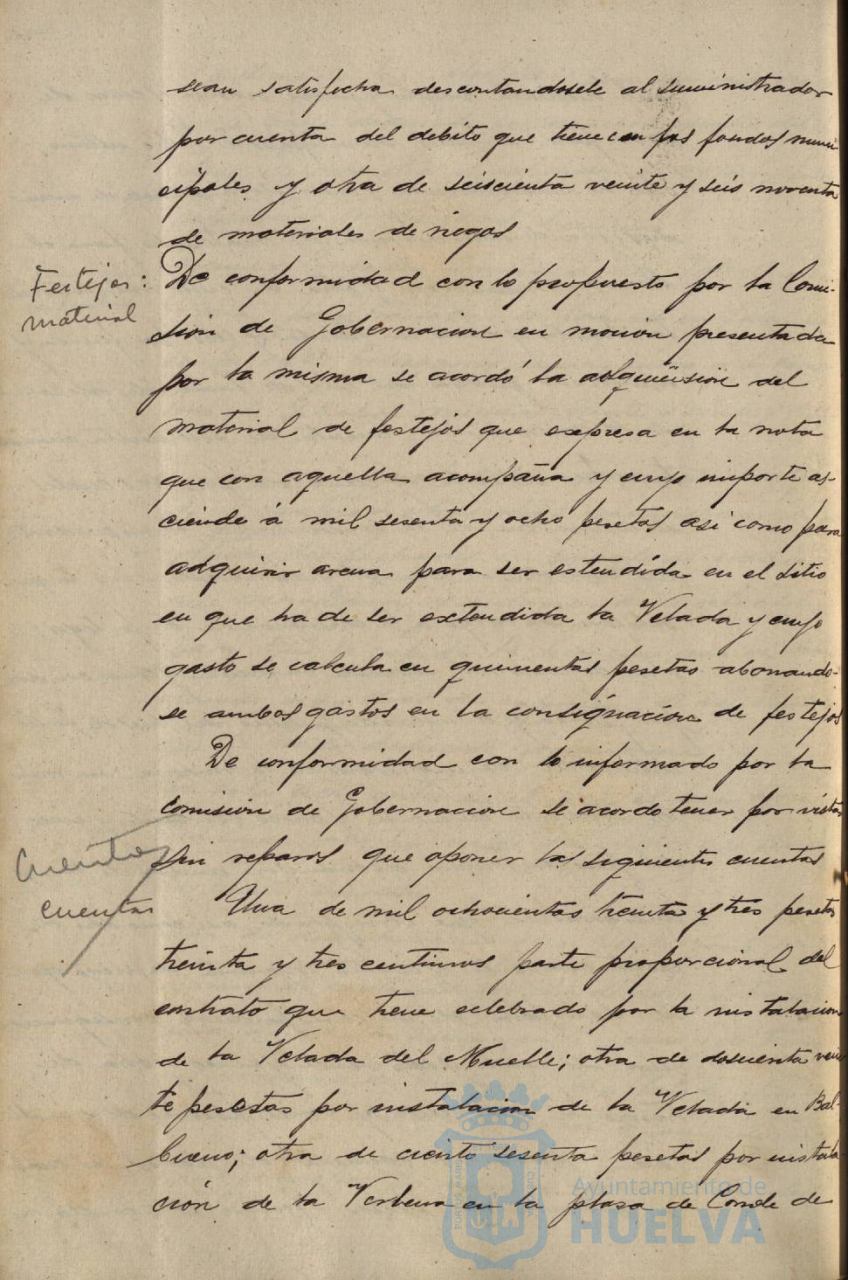 sean satisfecha descontandosele al suministrador
por cuenta del debito que tiene con los fondos muni
cipales y otra de seiscienta veinte y seis noventa
de materiales de riegos
Festejos:
material
De conformidad con lo propuesto por la Comi-
sion de Gobernacion en mocion presentada
por la misma se acordó la adquisision del
material de festejos que expresa en la nota
que con aquella acompaña y cuyo importe as-
ciende á mil sesenta y ocho pesetas asi como para
adquirir arena para ser estendida en el sitio
en que ha de ser extendida la Velada y cuyo
gasto se calcula en quinientas pesetas abonando-
se ambos gastos en la consignación de festejos
De conformidad con lo informado por la
Comision de Gobernacion se acordo tener por vistas
sin reparos que oponer las siguientes cuentas
Cuentas
cuentas
Una de mil ochocientas treinta y tres pesetas
treinta y tres centimos parte proporcional del
contrato que tiene celebrado por la instalacion
de la Velada del Muelle; otra de doscienta vein
te pesetas por instalacion de la Velada en Bal-
bueno; otra de ciento sesenta pesetas por instala-
ción de la Verbena en la plasa de Conde de
Ayuntamiento de
HUELVA